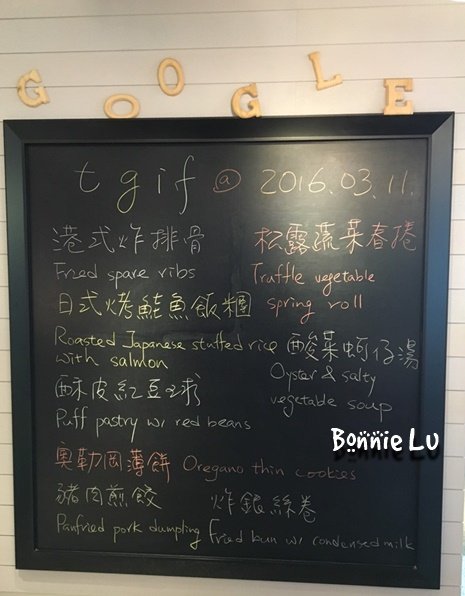 GOOGLE
tgif @ 2016.03.11.
港式炸排骨
Fried spare ribs
松露蔬菜春捲
Truffle vegetable
spring roll
日式烤鮭魚飯糰
Roasted Japanese stuffed rice
with salmon
酸菜蚵仔湯
Oyster & salty
vegetable soup
酥皮紅豆球
Puff pastry w/ red beans
Bonnie Lu
奧勒岡薄餅 Oregano thin cookies
豬肉煎餃
Panfried pork dumpling
炸銀絲卷
Fried bun w/ condensed milk